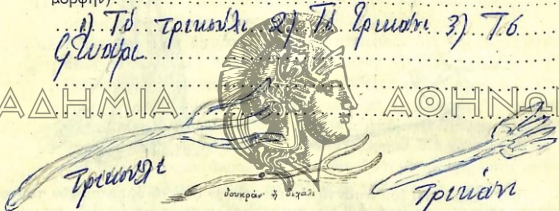 μορφήν)
1) Τό τρικούλι 2) Τό τρικάνι 3) Τό
φτυάρι
ΑΔΗΜΙΑ ΑΘΗΝΩΝ
τρικούλι
δουκράν' ἢ διχάλι
τρικάνι